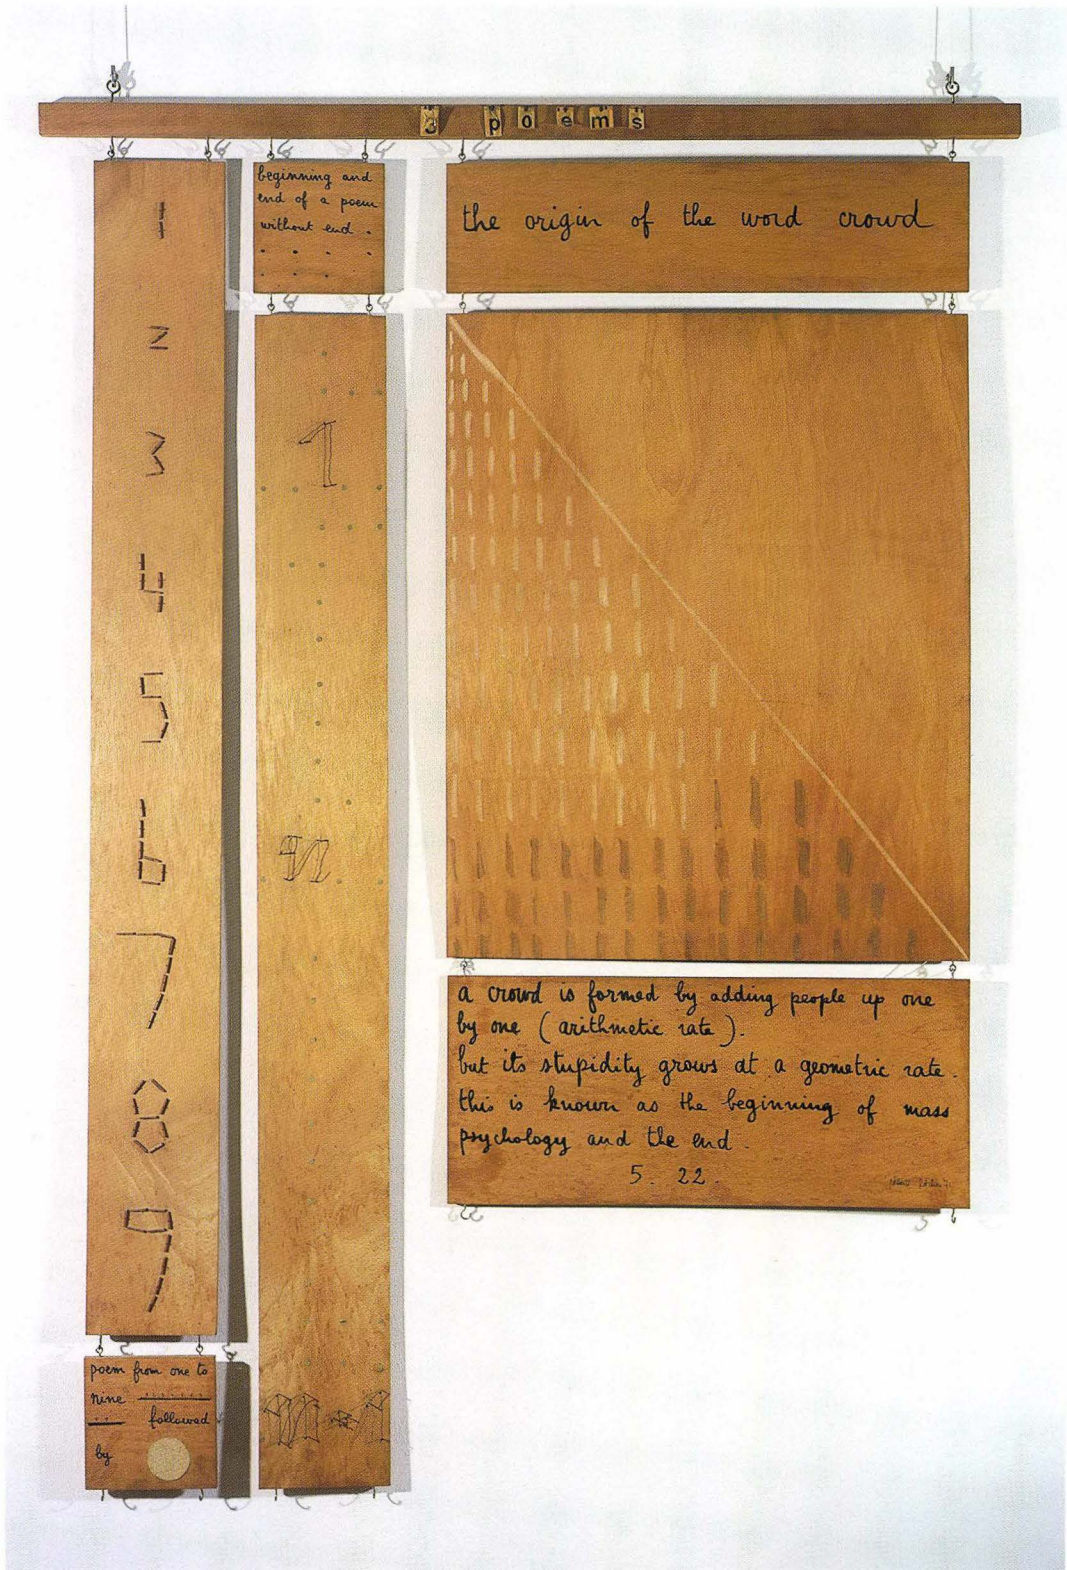 3 poems
1
2
3
4
5
6
7
8
9
poem from one to
nine
followed
by
beginning and
end of a poem
without end .
1
n
n + 1
the origin of the word crowd
a crowd is formed by adding people up one
by one (arithmetic rate).
but its stupidity grows at a geometric rate.
this is known as the beginning of mass
psychology and the end.
5. 22.